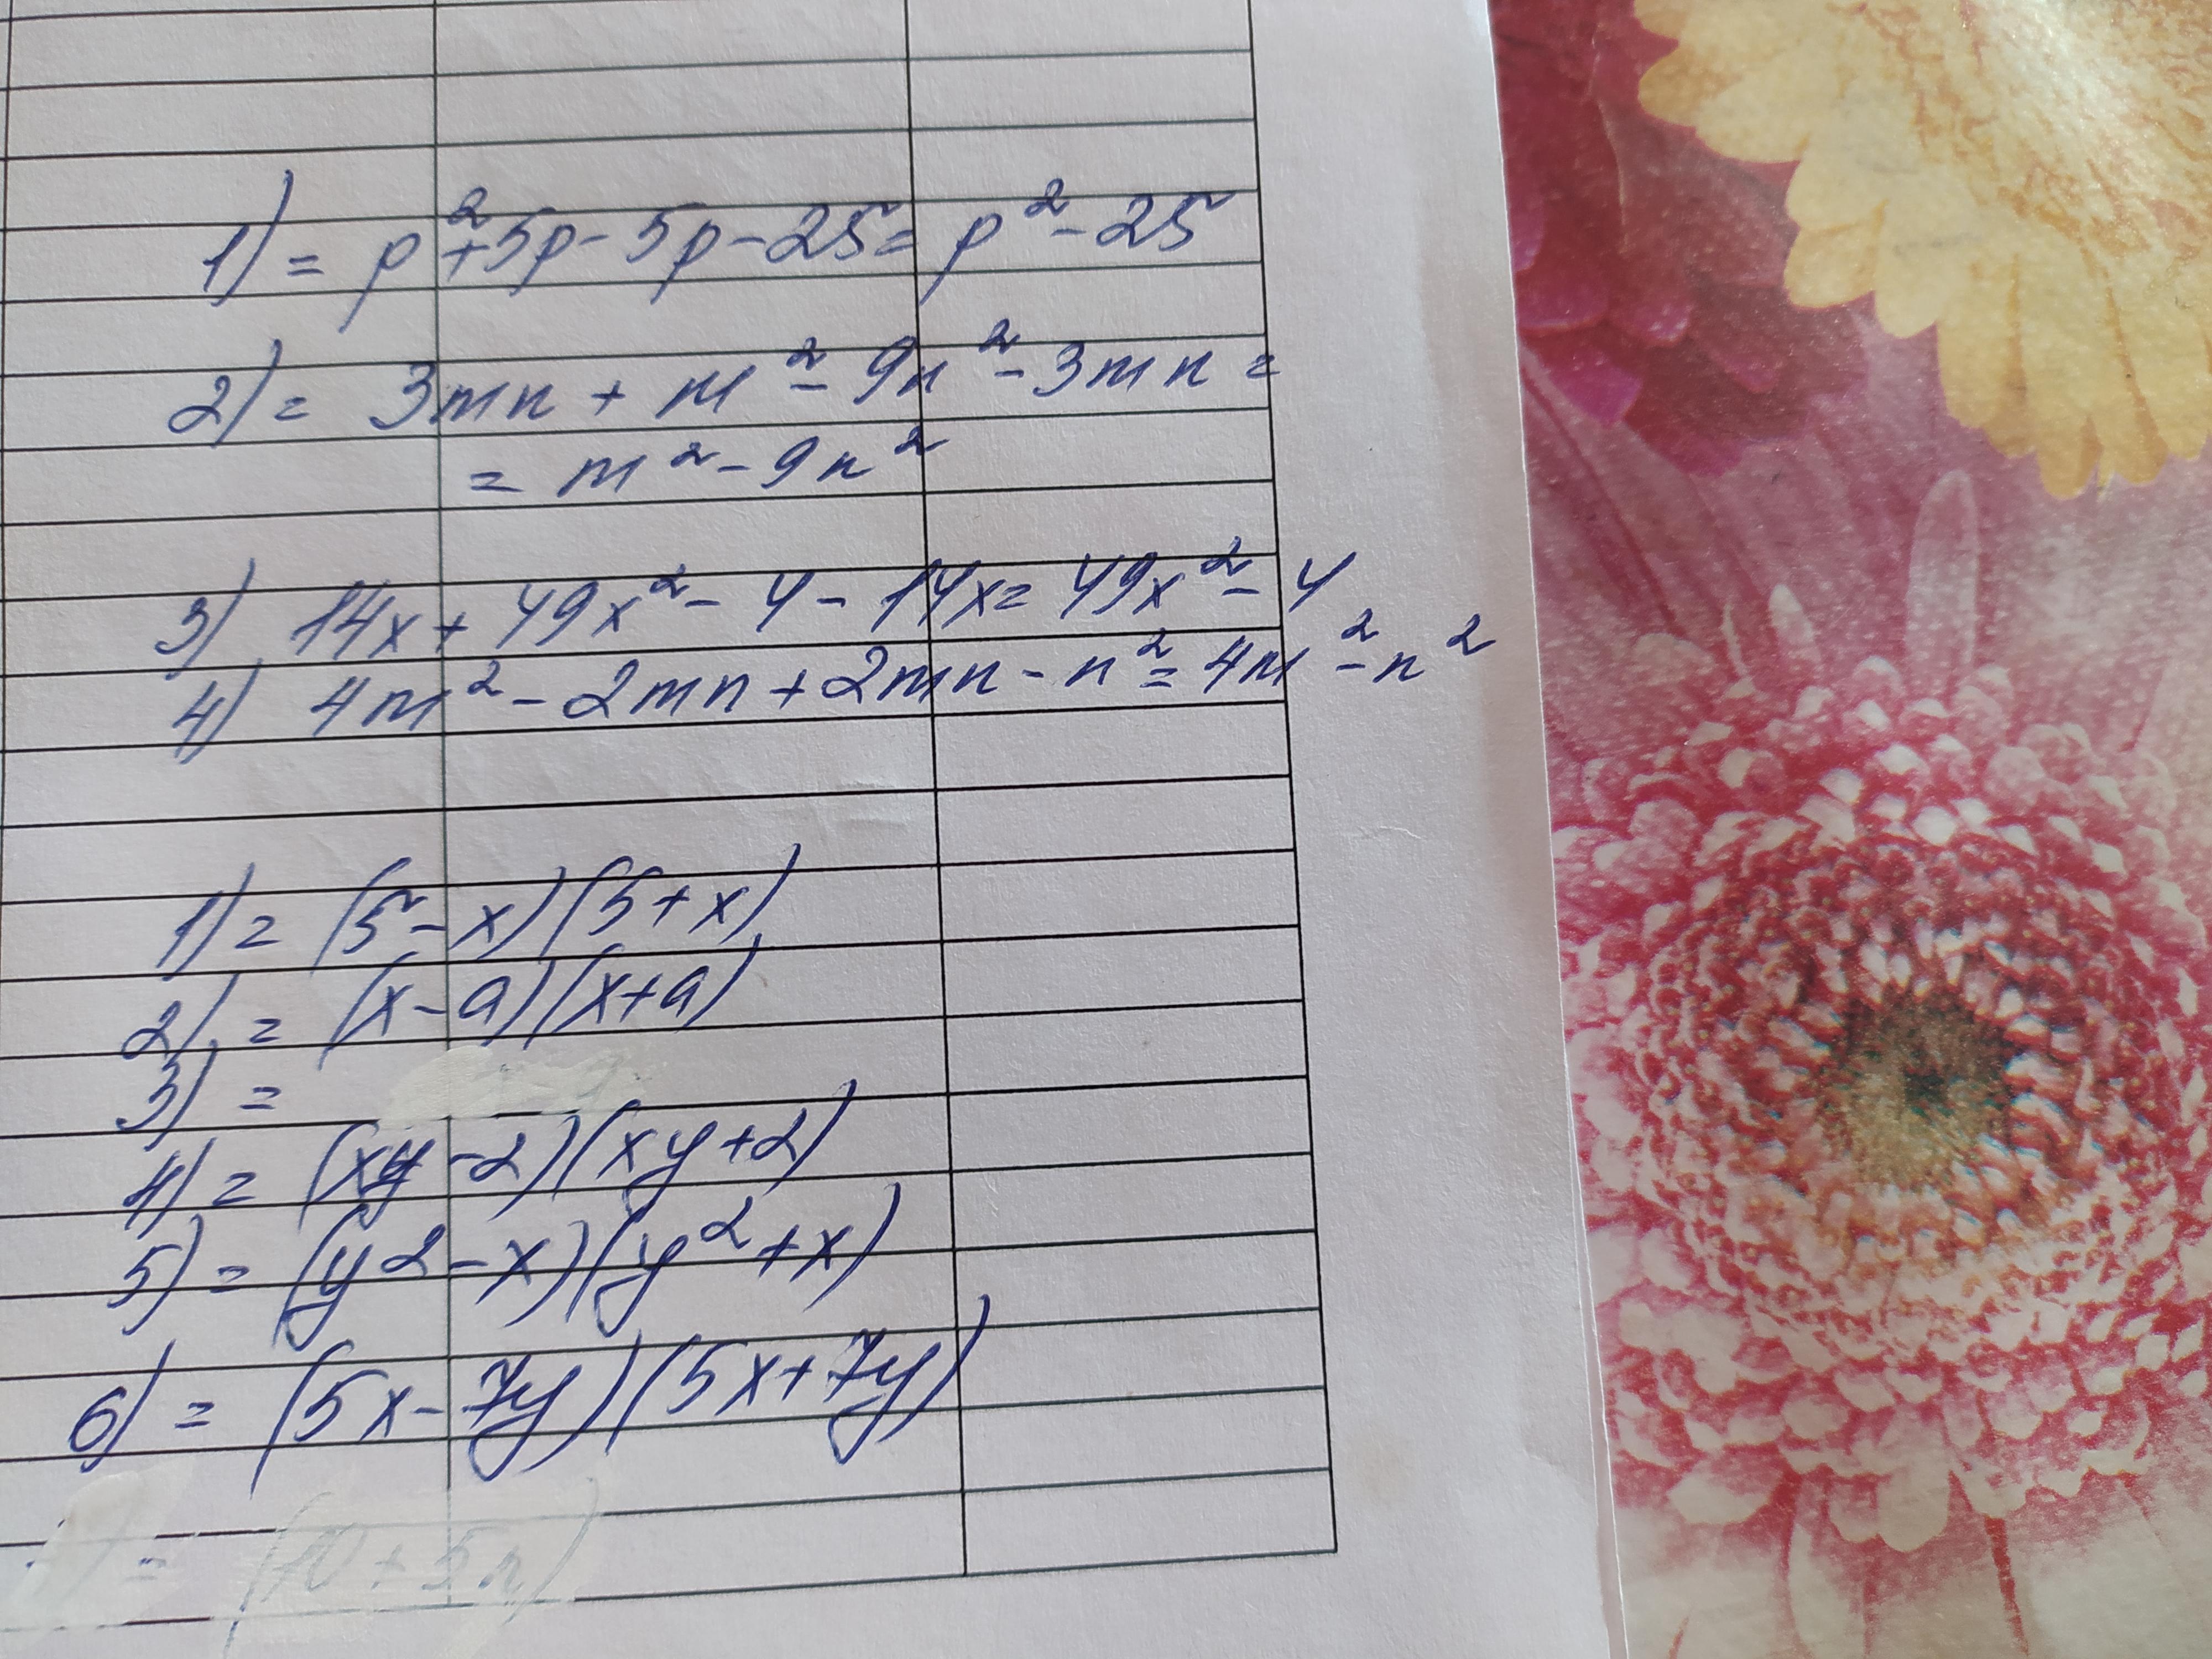 1) = p²+5p-5p-25= p²-25
2) = 3mn + m²-9n²-3mn =
= m²-9n²
3) 14x+49x²-4-14x=49x²-4
4) 4m²-2mn+2mn-n²=4m²-n²
1) = (5-x)(5+x)
2) = (x-a)(x+a)
3) =
4) = (xy-2)(xy+2)
5) = (y²-x)(y²+x)
6) = (5x-7y)(5x+7y)
= (10+5n)